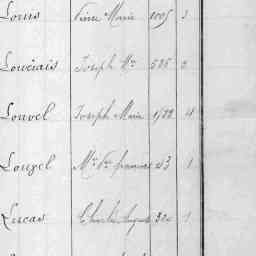 Louis Pierre Marie 1005 3
Louciais Joseph Mie 2
Louvel Joseph Marie 4
Louzel françois 43 1
Lucas Charles Auguste 304 1